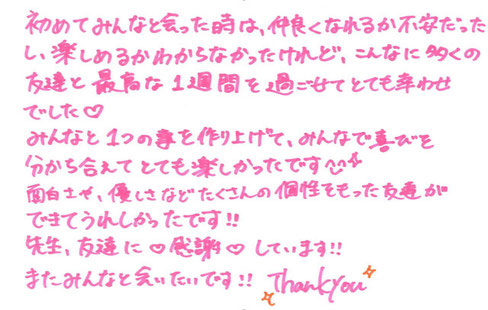 初めてみんなと会った時は、仲良くなれるか不安だった
し、楽しめるかわからなかったけれど、こんなに多くの
友達と最高な1週間を過ごせてとても幸わせ
でした♡
みんなと1つの事を作り上げて、みんなで喜びを
分かち合えてとても楽しかったです
面白さや、優しさなどたくさんの個性をもった友達が
できてうれしかったです!!
先生、友達に♡感謝♡しています!!
またみんなと会いたいです!! Thank you